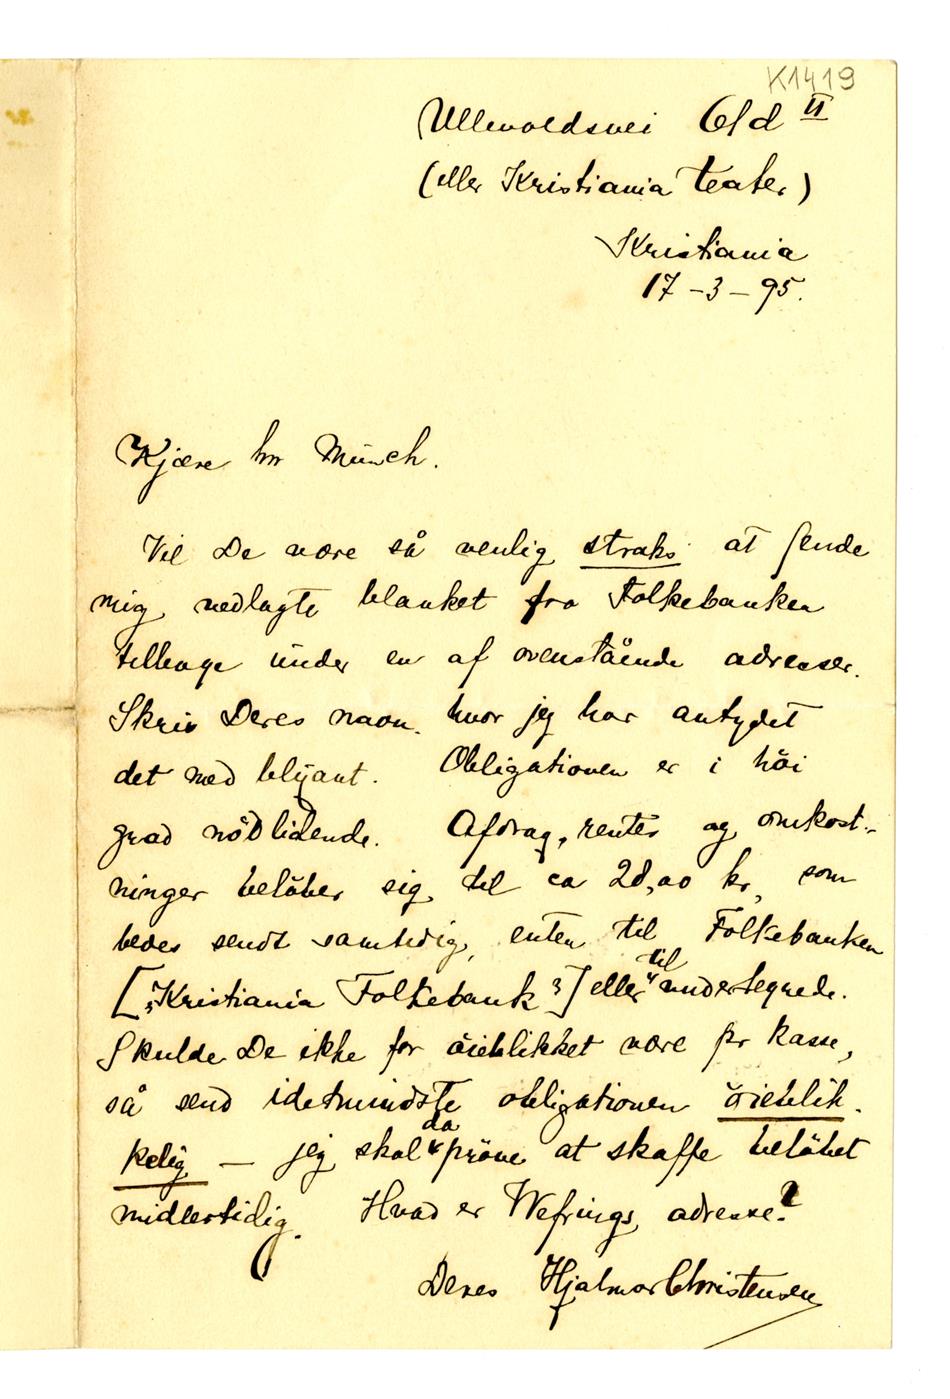 K1419
Ullevoldsvei 61d II
(eller Kristiania Teater)
Kristiania
17-3-95.
Kjære hr Münch.
Vil De være så venlig straks at sende
mig nedlagte blanket fra Folkebanken
tilbage under en af ovenstående adresser.
Skriv Deres navn hvor jeg har antydet
det med blyant. Obligationen er i höi
grad nödlidende. Afdrag, renter og omkost-
ninger belöber sig til ca 28,00 kr, som
bedes sendt samtidig, enten til Folkebanken
[„Kristiania Folkebank“] eller til undertegnede.
Skulde De ikke for öieblikket være pr kasse,
så send idetmindste obligationen öieblik-
kelig — jeg skal da pröve at skaffe belöbet
midlertidig. Hvad er Wefrings adresse?
Deres Hjalmar Christensen